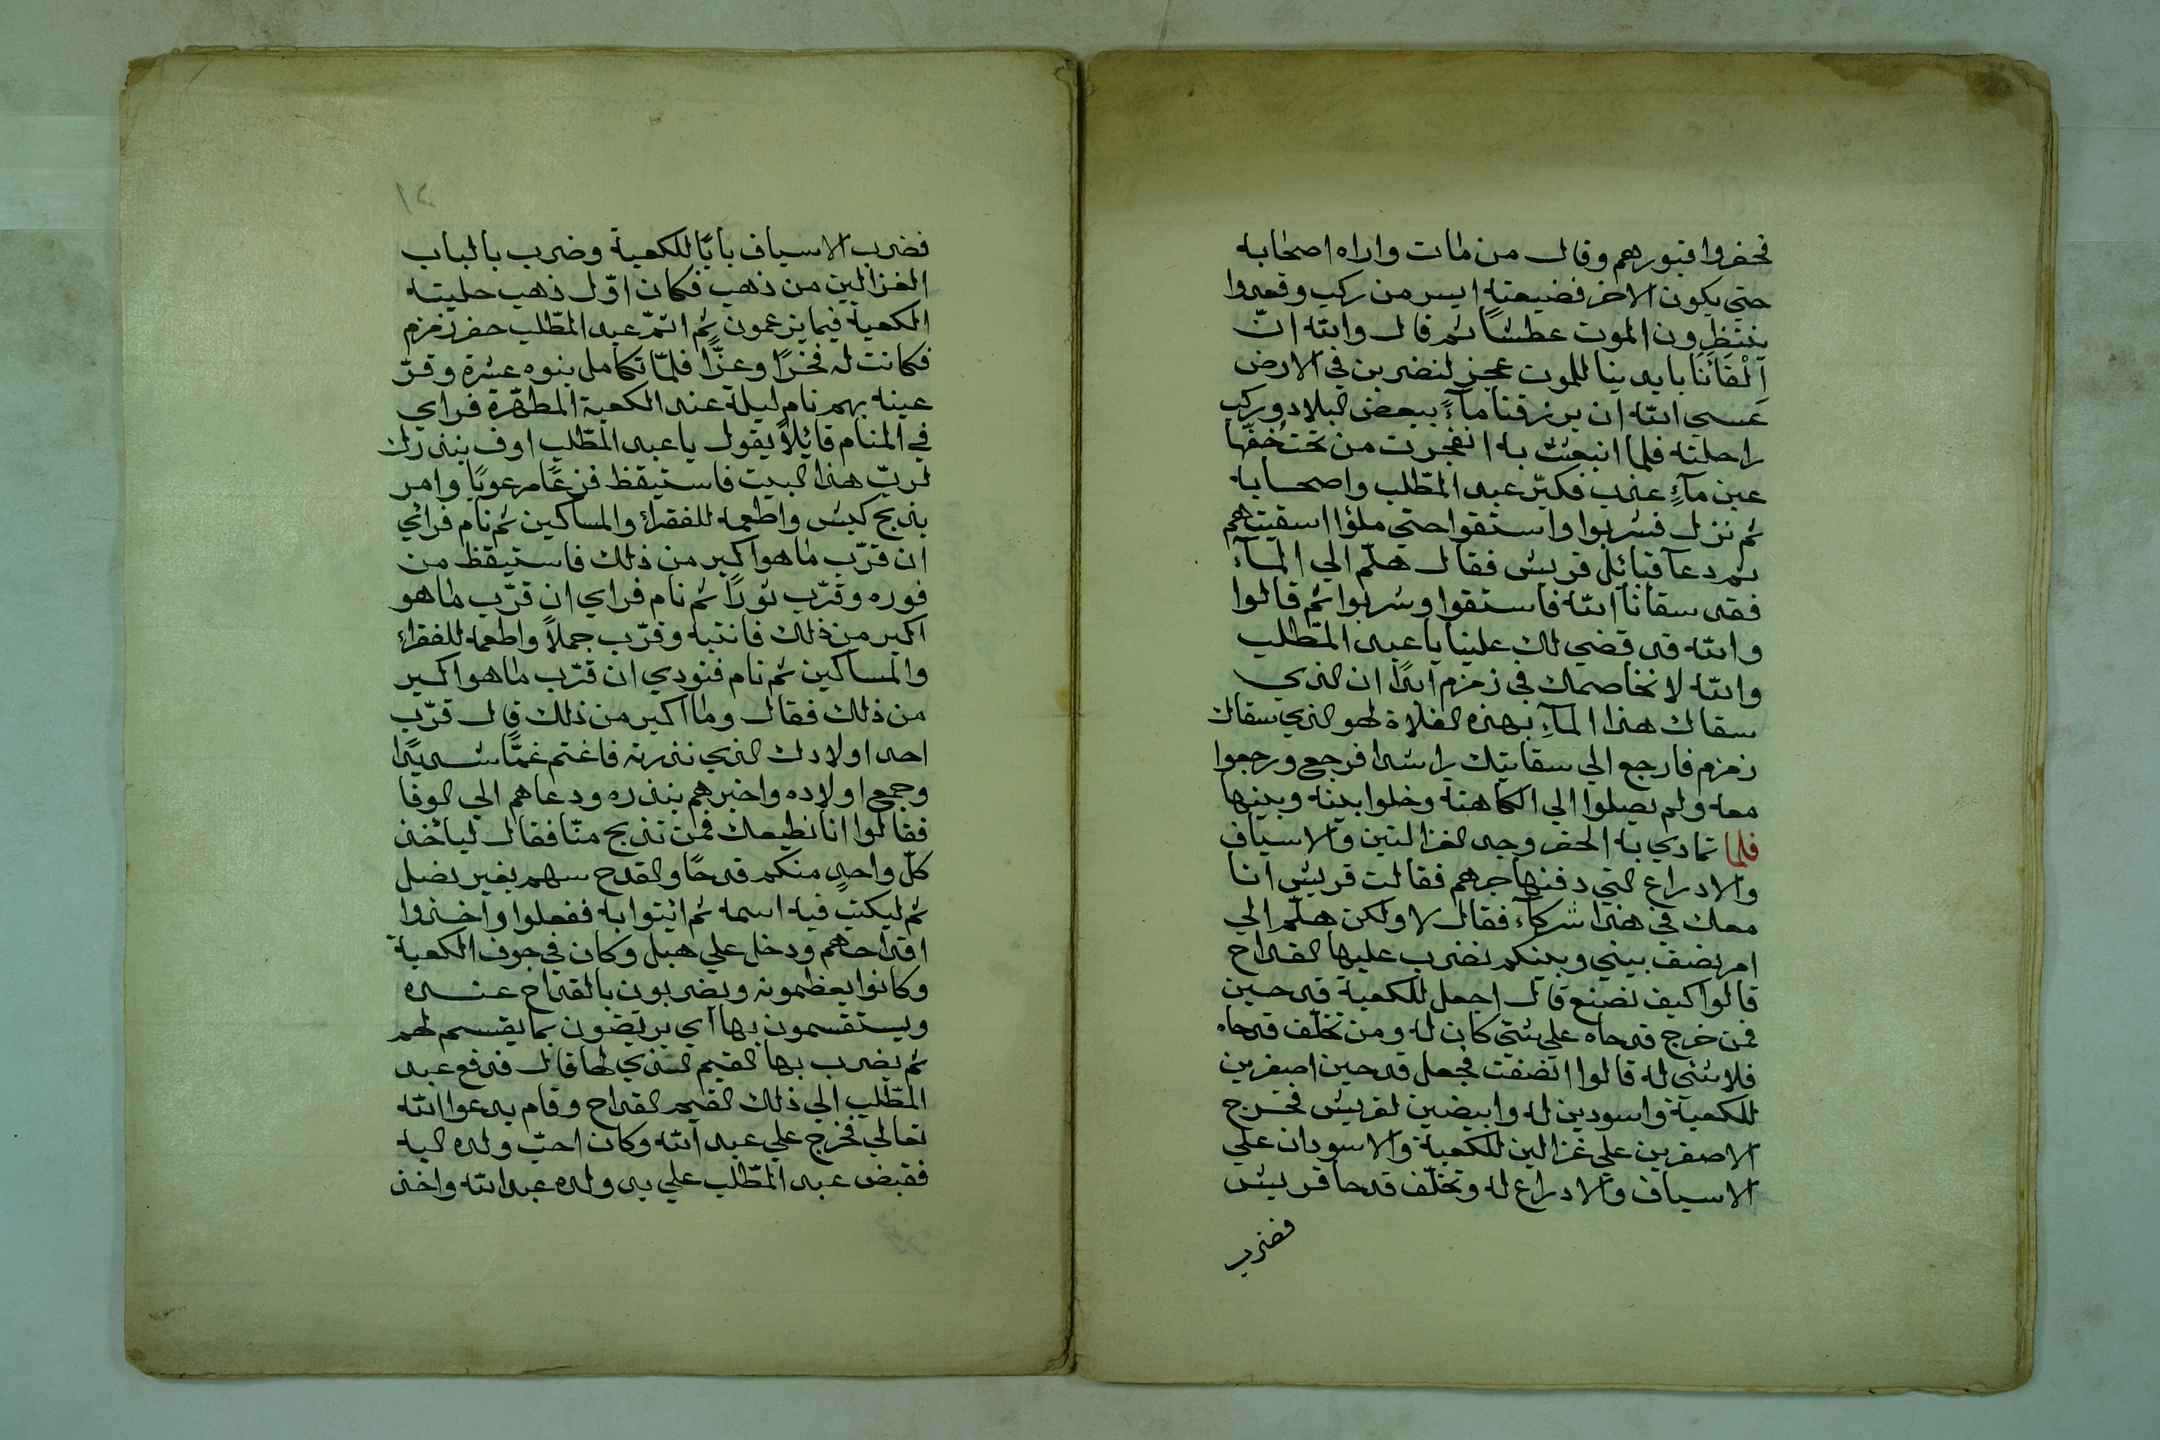 فحفروا قبورهم وقال من مات واراه اصحابه
حتي يكون الاخر فضيعته ايسر من ركب وقعدوا
ينتظرون الموت عطشًا ثم قال والله انّ
اِلْقَانَا بايدينا للموت عجز لنضربن في الارض
عسي الله ان يرزقنا مآءً ببعض البلاد وركب
راحلته فلما انبعثت به انفجرت من تحت خفّها
عين مآءٍ عذب فكبّر عبد المطّلب واصحابه
ثم نزل فشربوا واستقوا حتي ملؤا اسقيتهم
ثم دعآ قبائل قريش فقال هلّم الي المآء
فقد سقانا الله فاستقوا وشربوا ثم قالوا
والله قد قضي لك علينا يا عبد المطّلب
والله لا نخاصمك في زمزم ابدًا ان الذي
سقاك هذا المآءِ بهذه الفلاة لهو الذي سقاك
زمزم فارجع الي سقايتك راشدا فرجع ورجعوا
معه ولم يصلوا الي الكاهنة وخلوا بينه وبينها
فلما تمادي به الحفر وجد الغزالتين والاسياف
والادراع التي دفنها جرهم فقالت قريش انا
معك في هذا شركآء فقال لا ولكن هلّم الي
امر نصف بيني وبينكم نضرب عليها القداح
قالوا كيف نصنع قال اجعل للكعبة قدحين
فمن خرج قدحاه علي شئ كان له ومن تخلّف قدحاه
فلا شئ له قالوا انصفت فجعل قدحين اصفرين
للكعبة واسودين له وابيضين لقريش فخرج
الاصفرين علي غزالين للكعبة والاسودان علي
الاسياف والادراع له وتخلّف قدحا قريش
فضرب
٢١
فضرب الاسياف بابًا للكعبة وضرب بالباب
الغزالين من ذهب فكان اوّل ذهب حليته
الكعبة فيما يزعمون ثم اتمّ عبد المطّلب حفر زمزم
فكانت له فخرًا وعزًّا فلمّا تكامل بنوه عشرة وقرّ
عينه بهم نام ليلة عند الكعبة المطهّرة فراي
في المنام قائلاً يقول يا عبد المطّلب اوف بنذرك
لربّ هذا البيت فاستيقظ فزعًا مرعوبًا وامر
بذبح كبش واطعمه للفقراء والمساكين ثم نام فرائي
ان قرّب ما هو اكبر من ذلك فاستيقظ من
فوره وقرّب ثورًا ثم نام فراي ان قرّب ما هو
اكبر من ذلك فانتبه وقرّب جملاً واطعمه للفقراء
والمساكين ثم نام فنودي ان قرّب ما هو اكبر
من ذلك فقال وما اكبر من ذلك قال قرّب
احد اولادك الذي نذرته فاغتم غمًّا شديدًا
وجمع اولاده واخبرهم بنذره ودعاهم الي الوفا
فقالوا انا نطيعك فمن تذبح منّا فقال ليأخذ
كلّ واحدٍ منكم قدحًا والقدح سهم بغير نصل
ثم ليكتب فيه اسمه ثم ائتوا به ففعلوا واخذوا
اقداحهم ودخل علي هبل وكان في جوف الكعبة
وكانوا يعظمونه ويضربون بالقداح عنده
ويستقسمون بها اي يرتضون بما يقسم لهم
ثم يضرب بها القيم الذي لها قال فدفع عبد
المطّلب الي ذلك القيم القداح وقام يدعوا الله
تعالي فخرج علي عبد الله وكان احبّ ولده اليه
فقبض عبد المطّلب علي يد ولده عبد الله واخذ